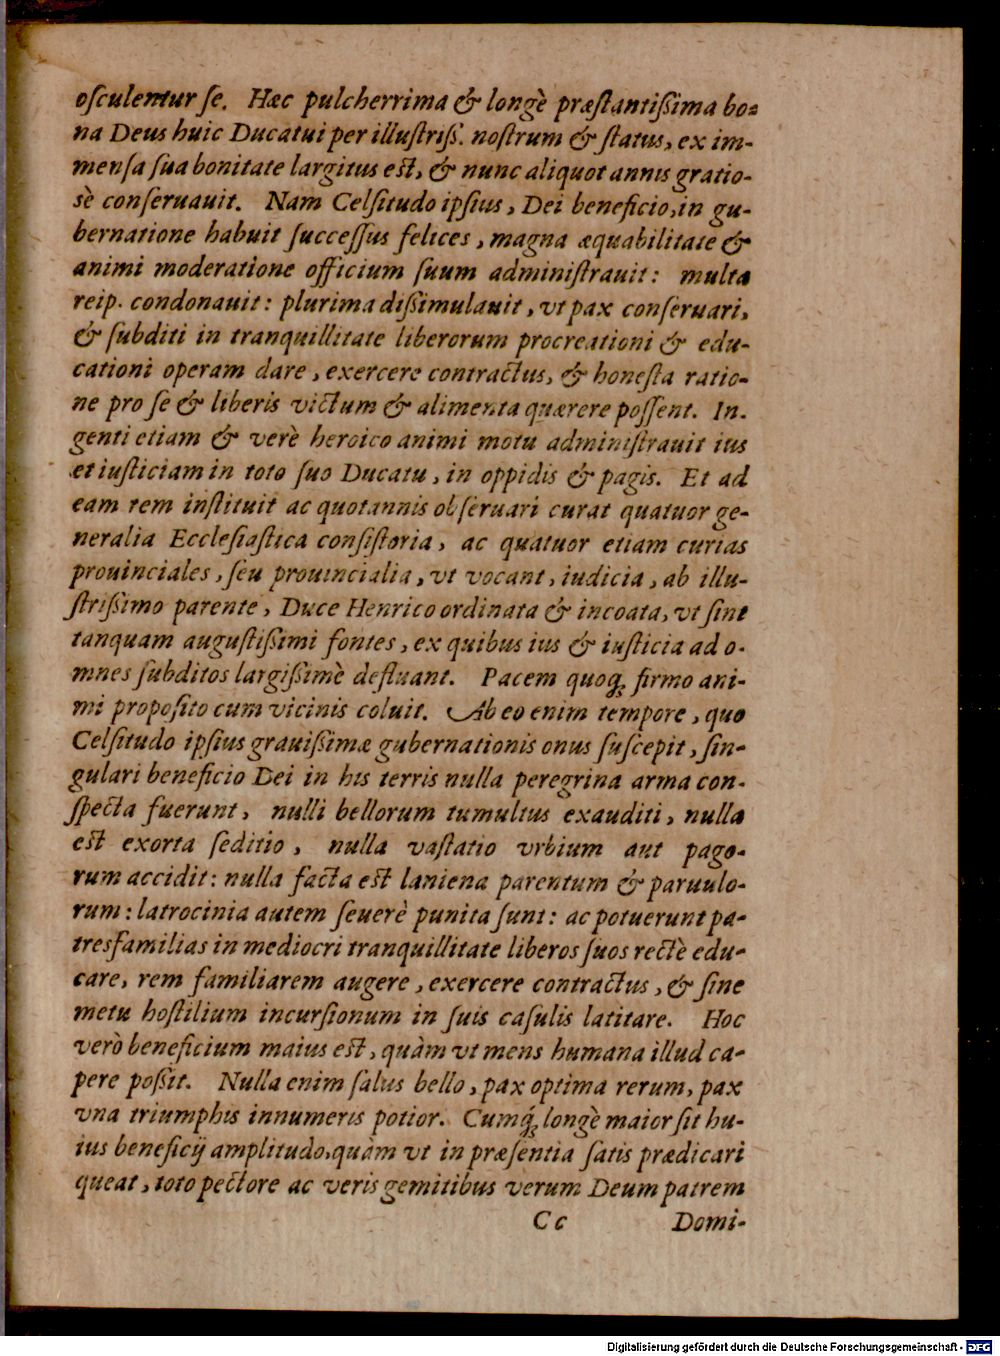 osculentur se. Hæc pulcherrima & longè præstantißima bo-
na Deus huic Ducatui per illustriß. nostrum & status, ex im-
mensa sua bonitate largitus est, & nunc aliquot annis gratio-
sè conseruauit. Nam Celsitudo ipsius, Dei beneficio, in gu-
bernatione habuit successus felices, magna æquabilitate &
animi moderatione officium suum administrauit: multa
reip. condonauit: plurima dißimulauit, vt pax conseruari,
& subditi in tranquillitate liberorum procreationi & edu-
cationi operam dare, exercere contractus, & honesta ratio-
ne pro se & liberis victum & alimenta quærere possent. In-
genti etiam & verè heroico animi motu administrauit ius
et iusticiam in toto suo Ducatu, in oppidis & pagis. Et ad
eam rem instituit ac quotannis obseruari curat quatuor ge-
neralia Ecclesiastica consistoria, ac quatuor etiam curias
prouinciales, seu prouincialia, vt vocant, iudicia, ab illu-
strißimo parente, Duce Henrico ordinata & incoata, vt sint
tanquam augustißimi fontes, ex quibus ius & iusticia ad o-
mnes subditos largißimè defluant. Pacem quoq; firmo ani-
mi proposito cum vicinis coluit. Ab eo enim tempore, quo
Celsitudo ipsius grauißimæ gubernationis onus suscepit, sin-
gulari beneficio Dei in his terris nulla peregrina arma con-
specta fuerunt, nulli bellorum tumultus exauditi, nulla
est exorta seditio, nulla vastatio vrbium aut pago-
rum accidit: nulla facta est laniena parentum & paruulo-
rum: latrocinia autem seuerè punita sunt: ac potuerunt pa-
tresfamilias in mediocri tranquillitate liberos suos rectè edu-
care, rem familiarem augere, exercere contractus, & sine
metu hostilium incursionum in suis casulis latitare. Hoc
verò beneficium maius est, quàm vt mens humana illud ca-
pere poßit. Nulla enim salus bello, pax optima rerum, pax
vna triumphis innumeris potior. Cumq́; longè maior sit hu-
ius beneficij amplitudo, quàm vt in præsentia satis prædicari
queat, toto pectore ac veris gemitibus verum Deum patrem
Cc Domi-
Digitalisierung gefördert durch die Deutsche Forschungsgemeinschaft - DFG